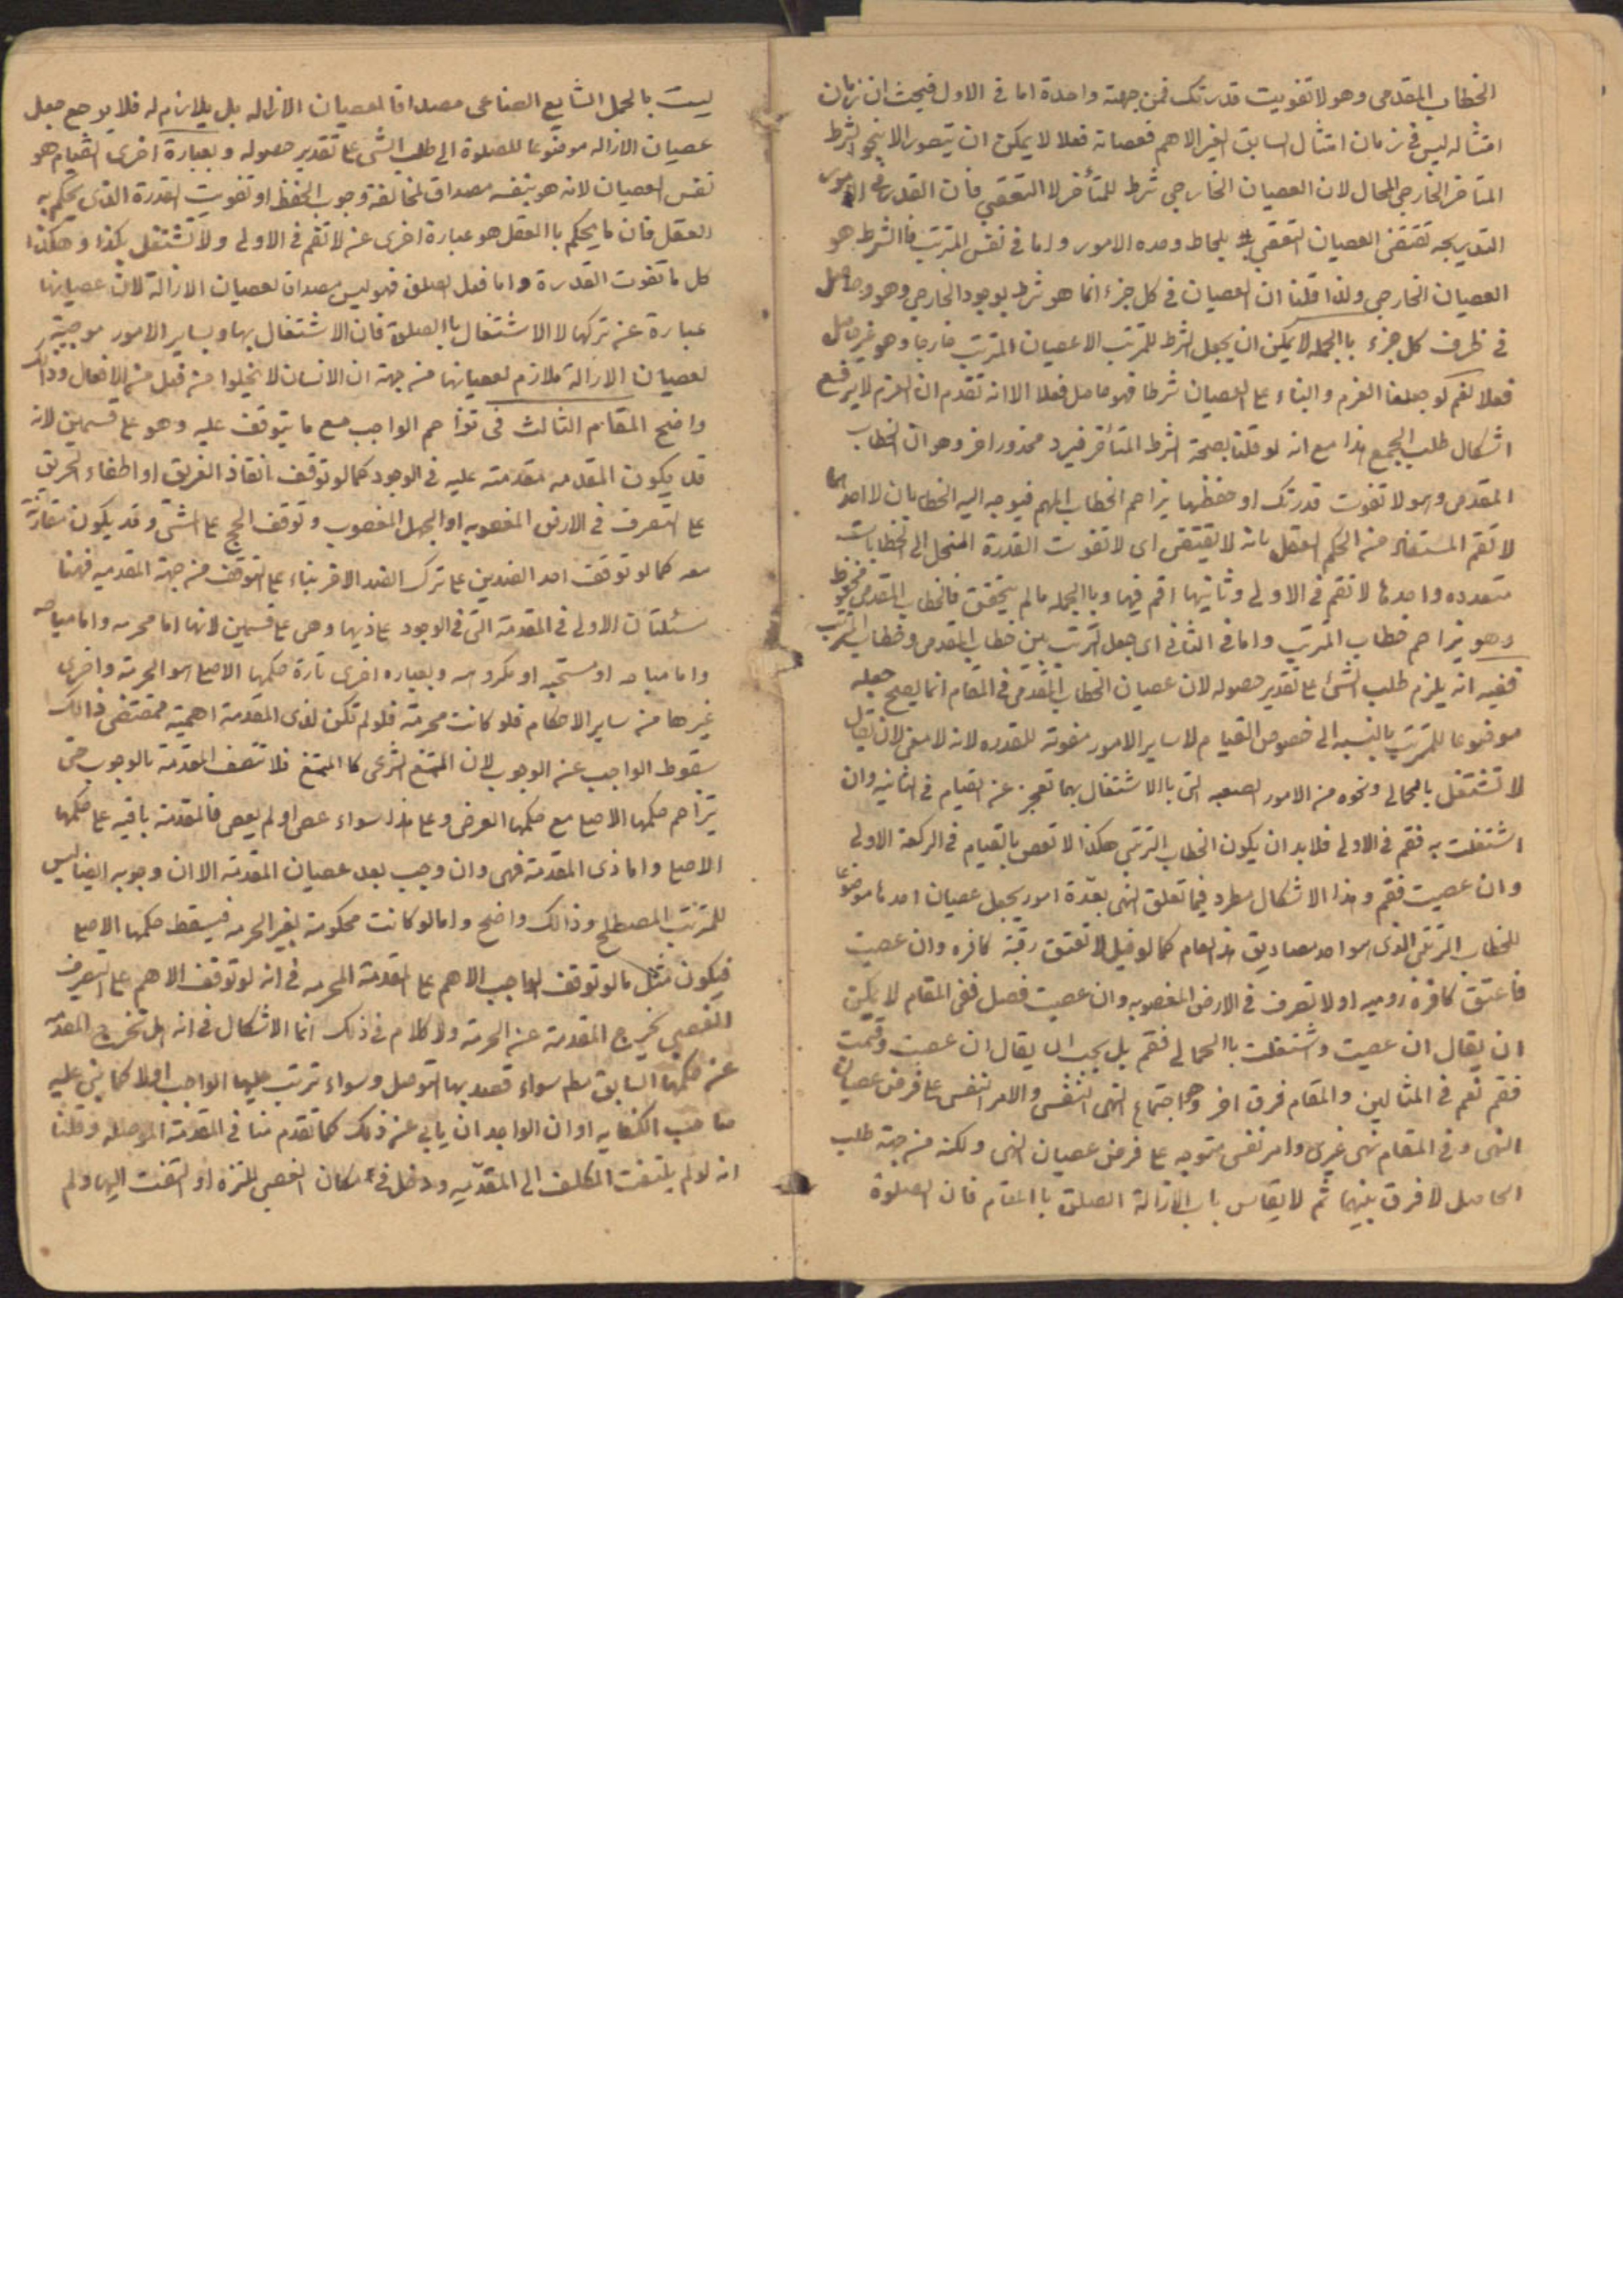 الخطاب المقدمى وهو لا تفويت قدرتك فمن جهته واحدة اما فى الاول فبحيث ان زمان
امتثاله ليس فى زمان امتثال السابق الغير الاهم فعصيانه فعلا لا يمكن ان يتصور الا بنحو الشرط
المتاخر الخارجى المحال لان العصيان الخارجى شرط للمتأخر لا التعقبى فان القدرة فى الامور
التدريجيه تقتضى العصيان التعقبى بلحاظ وحده الامور واما فى نفس المترتب فالشرط هو
العصيان الخارجى ولذا قلنا ان العصيان فى كل جزء انما هو شرط بوجود الخارجى وهو حاصل
فى ظرف كل جزء باالجمله لا يمكن ان يجعل الشرط للترتب الا عصيان المترتب خارجا وهو غير حاصل
فعلا نعم لو جعلنا العزم والبناء على العصيان شرطا فهو حاصل فعلا الا انه تقدم ان العزم لا يرفع
اشكال طلب الجمع هذا مع انه لو قلنا بصحة الشرط المتأخر فيرد محذور اخر وهو ان الخطاب
المقدمى وهو لا تفوت قدرتك او حفظها يزاحم الخطاب المهم فيوجه اليه الخطابان لا احدهما
لا تقم المستفاد من الحكم العقل بانه لا يقتضى اى لا تفوت القدرة المنحل الى الخطابات
متعدده واحدها لا تقم فى الاولى وثانيها اقم فيها وباالجمله مالم يتحقق فالخطاب المقدمى محفوظ
وهو يزاحم خطاب المترتب واما فى الثانى اى جعل الترتب بين خطاب المقدمى وخطاب المترتب
ففيه انه يلزم طلب الشئ على تقدير حصوله لان عصيان الخطاب المقدمى فى المقام انما يصح جعله
موضوعا للمترتب بالنسبه الى خصوص القيام لا ساير الامور مفوته للقدره لانه لا معنى لان يقال
لا تشتغل بالحمالى ونحوه من الامور الصعبه التى باالاشتغال بها تعجز عن القيام فى الثانيه وان
اشتغلت به فقم فى الاولى فلابد ان يكون الخطاب الترتبى هكذا لا تعص بالقيام فى الركعة الاولى
وان عصيت فقم وهذا الاشكال مطرد فيما تعلق النهى بعدّة امور يجعل عصيان احدها موضوعا
للخطاب الترتبى الذى هو احد مصاديق هذا العام كما لو قيل لا تعتق رقبة كافره وان عصيت
فاعتق كافرة روميه او لا تصرف فى الارض المغصوبه وان عصيت فصل ففى المقام لا يمكن
ان يقال ان عصيت واشتغلت باالحمالى فقم بل يجب ان يقال ان عصيت وقمت
فقم نعم فى المثالين والمقام فرق اخر وهو اجتماع النهى النفسى والامر النفسى على فرض عصيان
النهى وفى المقام نهى غيرى وامر نفسى متوجه على فرض عصيان النهى ولكنه من جهة طلب
الحاصل لا فرق بينهما ثم لا يقاس باب الازالة الصلوة باالمقام فان الصلوة
ليست بالحمل الشايع الصناعى مصداقا لعصيان الازاله بل يلازم له فلا يرجع جعل
عصيان الازاله موضوعا للصلوة الى طلب الشى على تقدير حصوله وبعبارة اخرى القيام هو
نفس العصيان لانه هو بنفسه مصداق لمخالفة وجوب الحفظ او تفويت القدرة الذى يحكم به
العقل فان ما يحكم باالعقل هو عبارة اخرى عن لا تقم فى الاولى ولا تشتغل بكذا وهكذا
كل ما تفوت القدرة واما فعل الصلوة فهو ليس مصداق لعصيان الازالة لان عصيانها
عبارة عن تركها لا الاشتغال باالصلوة فان الاشتغال بها وبساير الامور موجبة
لعصيان الازالة ملازم لعصيانها من جهة ان الانسان لا يخلوا من فعل من الافعال وذالك
واضح المقام الثالث فى تزاحم الواجب مع ما يتوقف عليه وهو على قسمين لانه
قد يكون المقدمه مقدمته عليه فى الوجود كما لو توقف انقاذ الغريق او اطفاء الحريق
على التصرف فى الارض المغصوبه او الجبل المغصوب وتوقف الحج على المشى وقد يكون مقارنة
معه كما لو توقف احد الضدين على ترك الضد الاخر بناء على التوقف من جهة المقدميه فهنا
مسئلتان الاولى فى المقدمة التى فى الوجود على ذيها وهى على قسمين لانها اما محرمه واما مباحه
واما مباحه او مستحبه او مكروهه وبعباره اخرى تارة حكمها الاصلى هو الحرمة واخرى
غيرها من ساير الاحكام فلو كانت محرمة فلو لم تكن لذى المقدمة اهمية فمقتضى ذالك
سقوط الواجب عن الوجوب لان الممتنع الشرعى كا الممتنع فلا تتصف المقدمة بالوجوب حتى
يزاحم حكمها الاصلى مع حكمها العرضى وعلى هذا سواء عصى او لم يعصى فالمقدمة باقيه على حكمها
الاصلى واما ذى المقدمة فهى وان وجب بعد عصيان المقدمة الا ان وجوبه ايضا ليس
للترتب المصطلح وذالك واضح واما لو كانت محكومة بغير الحرمه فيسقط حكمها الاصلى
فيكون مثل ما لو توقف الواجب الاهم على المقدمة المحرمه فى انه لو توقف الاهم على التصرف
الغصبى يخرج المقدمة عن الحرمة ولا كلام فى ذلك انما الاشكال فى انه هل تخرج المقدمه
عن حكمها السابق مطلق سواء قصد بها التوصل وسواء ترتب عليها الواجب اولا كما بنى عليه
صاحب الكفايه او ان الواجد ان يابى عن ذلك كما تقدم منا فى المقدمة الموصله وقلنا
انه لو لم يلتفت المكلف الى المقدّميه ودخل فى مكان الغصبى للتنزه او التفت اليها ولم